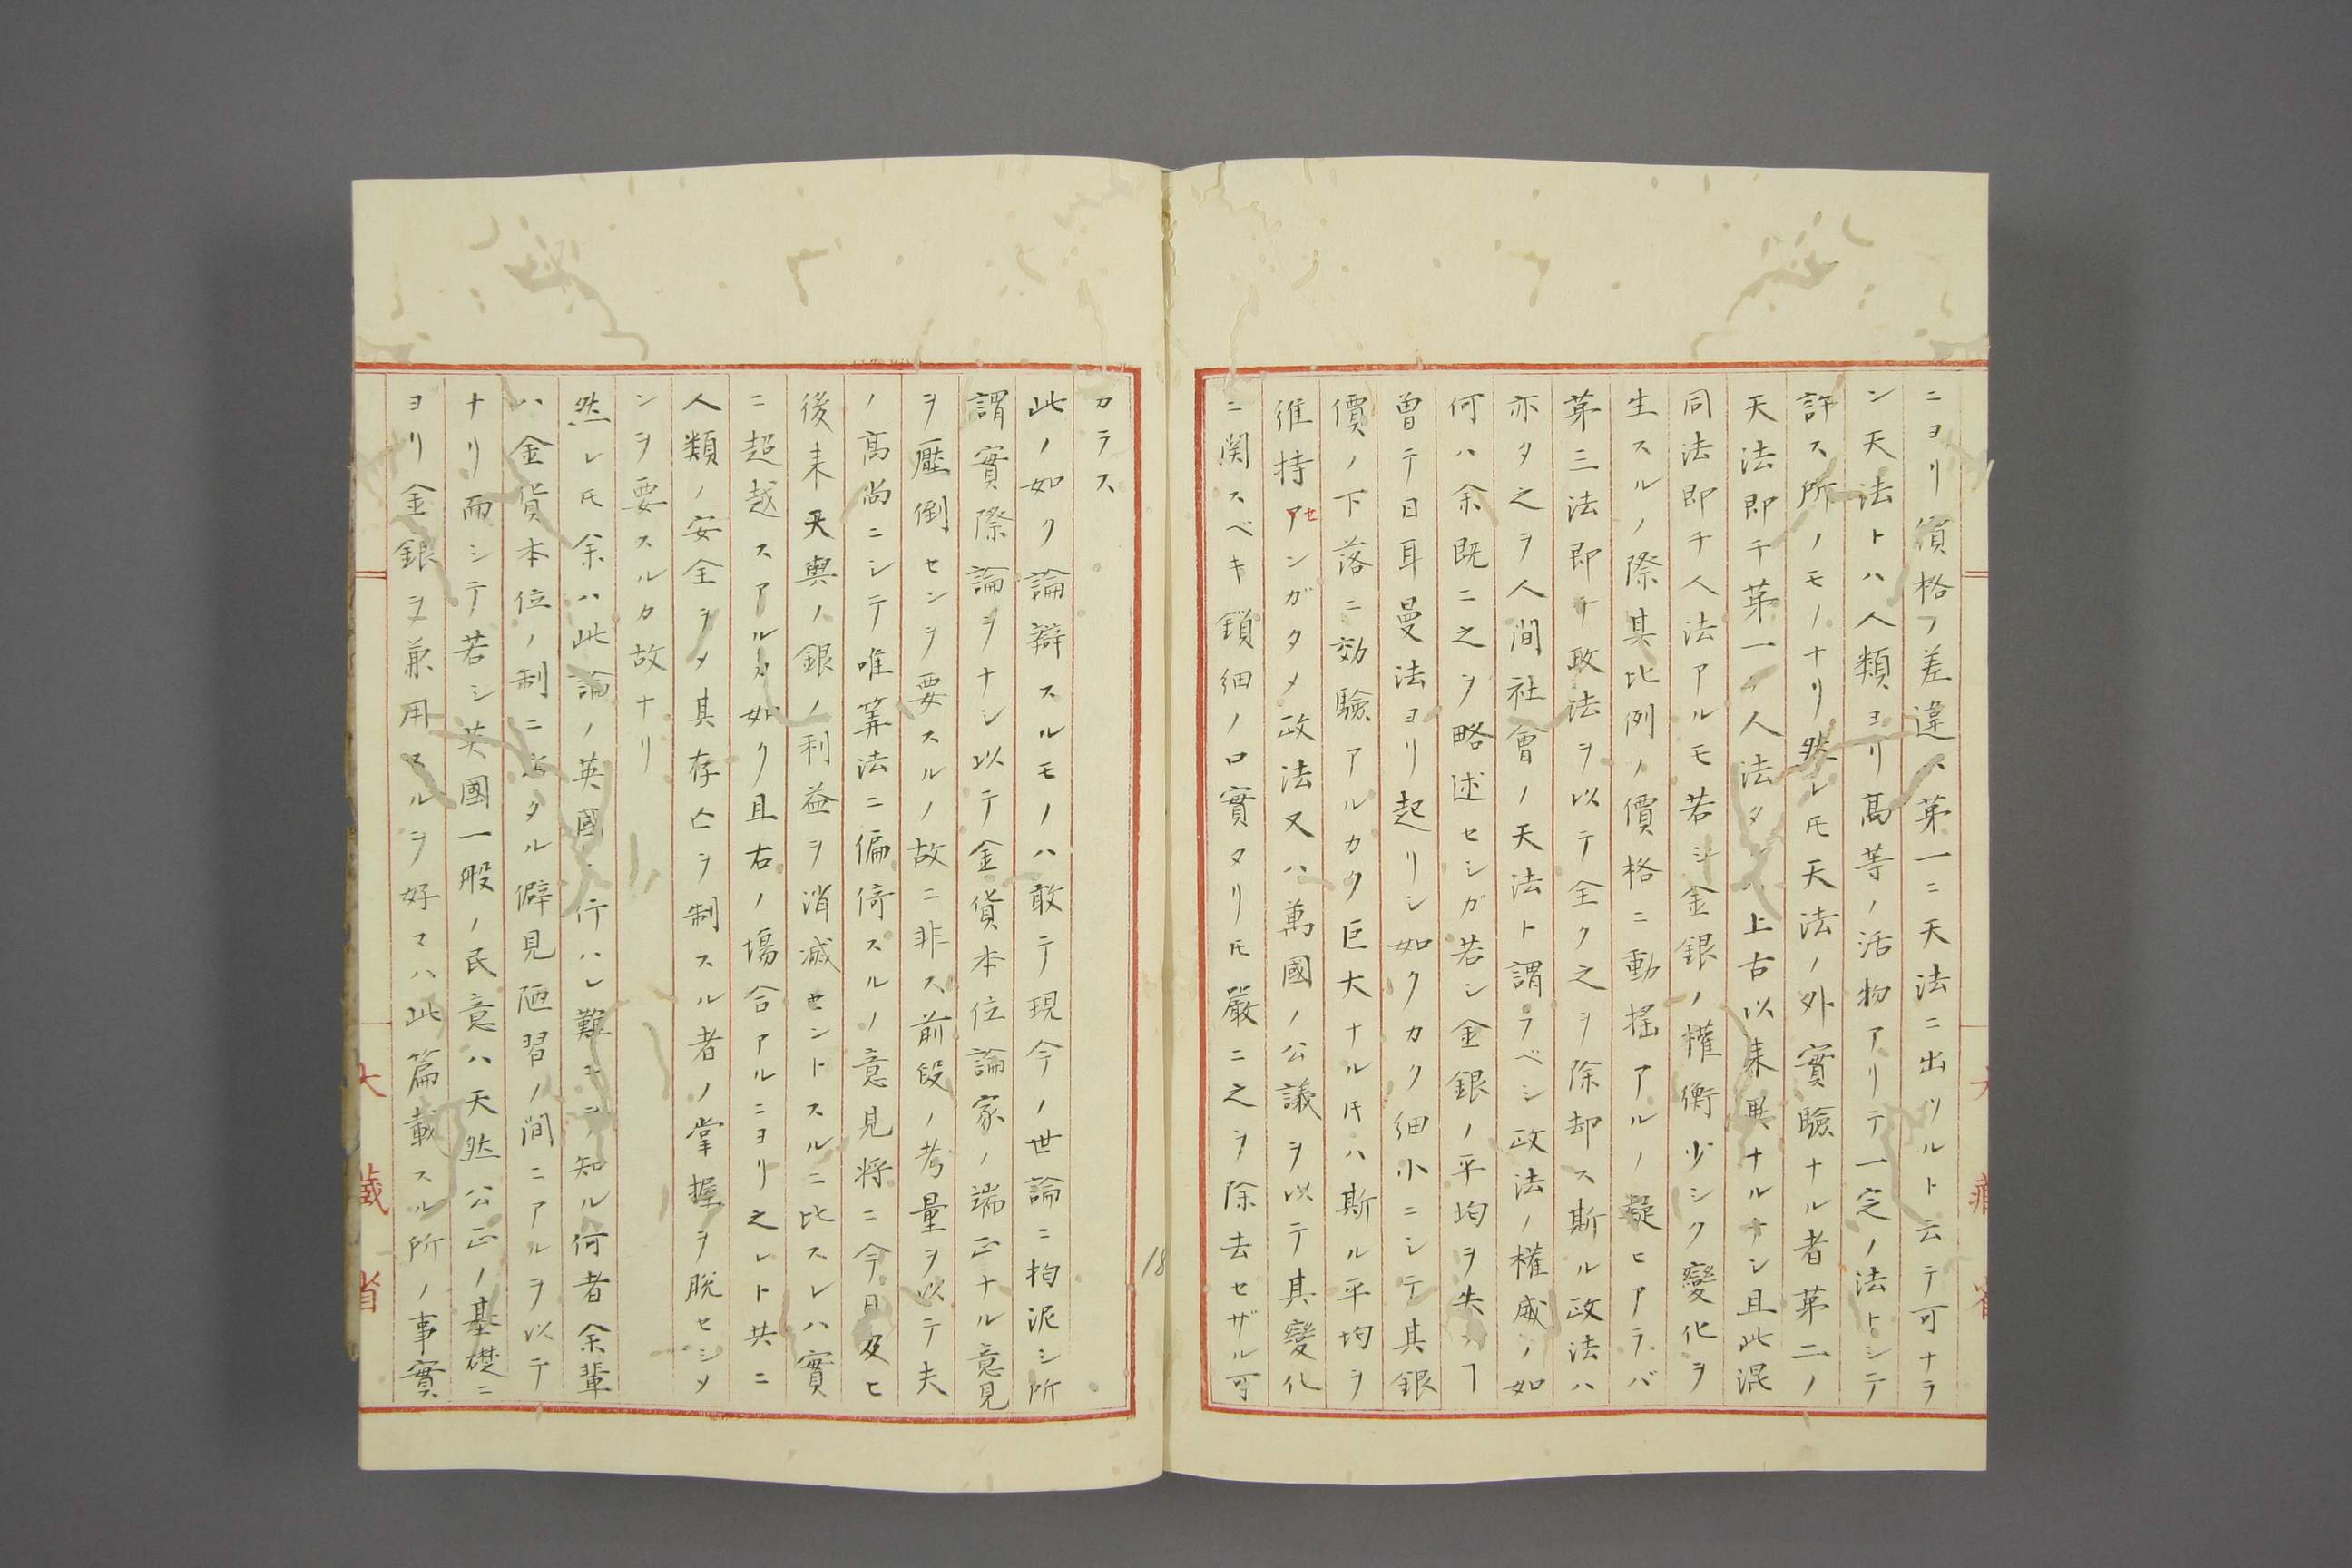 ニヨリ價格ノ差違ハ第一ニ天法ニ出ツルト云テ可ナラ
ン天法トハ人類ヨリ高等ノ活物アリテ一定ノ法トシテ
許ス所ノモノナリ然レ𪜈天法ノ外實驗ナル者第二ノ
天法即チ第一ノ人法タルハ上古以来異ナルナシ且此混
同法即チ人法アルモ若シ金銀ノ權衡少シク變化ヲ
生スルノ際其比例ノ價格ニ動揺アルノ疑ヒアラバ
第三法即チ政法ヲ以テ全ク之ヲ除却ス斯ル政法ハ
亦タ之ヲ人間社會ノ天法ト謂ラベシ政法ノ權威ノ如
何ハ余既ニ之ヲ略述セシガ若シ金銀ノ平均ヲ失フヿ
曽テ日耳曼法ヨリ起リシ如クカク細小ニシテ其銀
價ノ下落ニ効驗アルカク巨大ナル𪜈ハ斯ル平均ヲ
維持セアンガタメ政法又ハ萬國ノ公議ヲ以テ其變化
ニ関スベキ鎖細ノ口實タリ𪜈嚴ニ之ヲ除去セザル可
カラス
此ノ如ク論辯スルモノハ敢テ現今ノ世論ニ拘泥シ所
謂實際論ヲナシ以テ金貨本位論家ノ端正ナル意見
ヲ壓倒センヲ要スルノ故ニ非ス前段ノ考量ヲ以テ夫
ノ高尚ニシテ唯筭法ニ偏倚スルノ意見將ニ今日及ヒ
後来天與ノ銀ノ利益ヲ消滅セントスルニ比スレハ實
ニ超越スアルカ如ク且右ノ塲合アルニヨリ之レト共ニ
人類ノ安全ヲメ其存亡ヲ制スル者ノ掌握ヲ脱セシメ
ンヲ要スルカ故ナリ
然レ𪜈余ハ此論ノ英國ニ行ハレ難キヲ知ル何者余輩
ハ金貨本位ノ制ニ出タル僻見陋習ノ間ニアルヲ以テ
ナリ而シテ若シ英國一般ノ民意ハ天然公正ノ基礎ニ
ヨリ金銀ヲ兼用スルヲ好マハ此篇載スル所ノ事實
大藏省
18